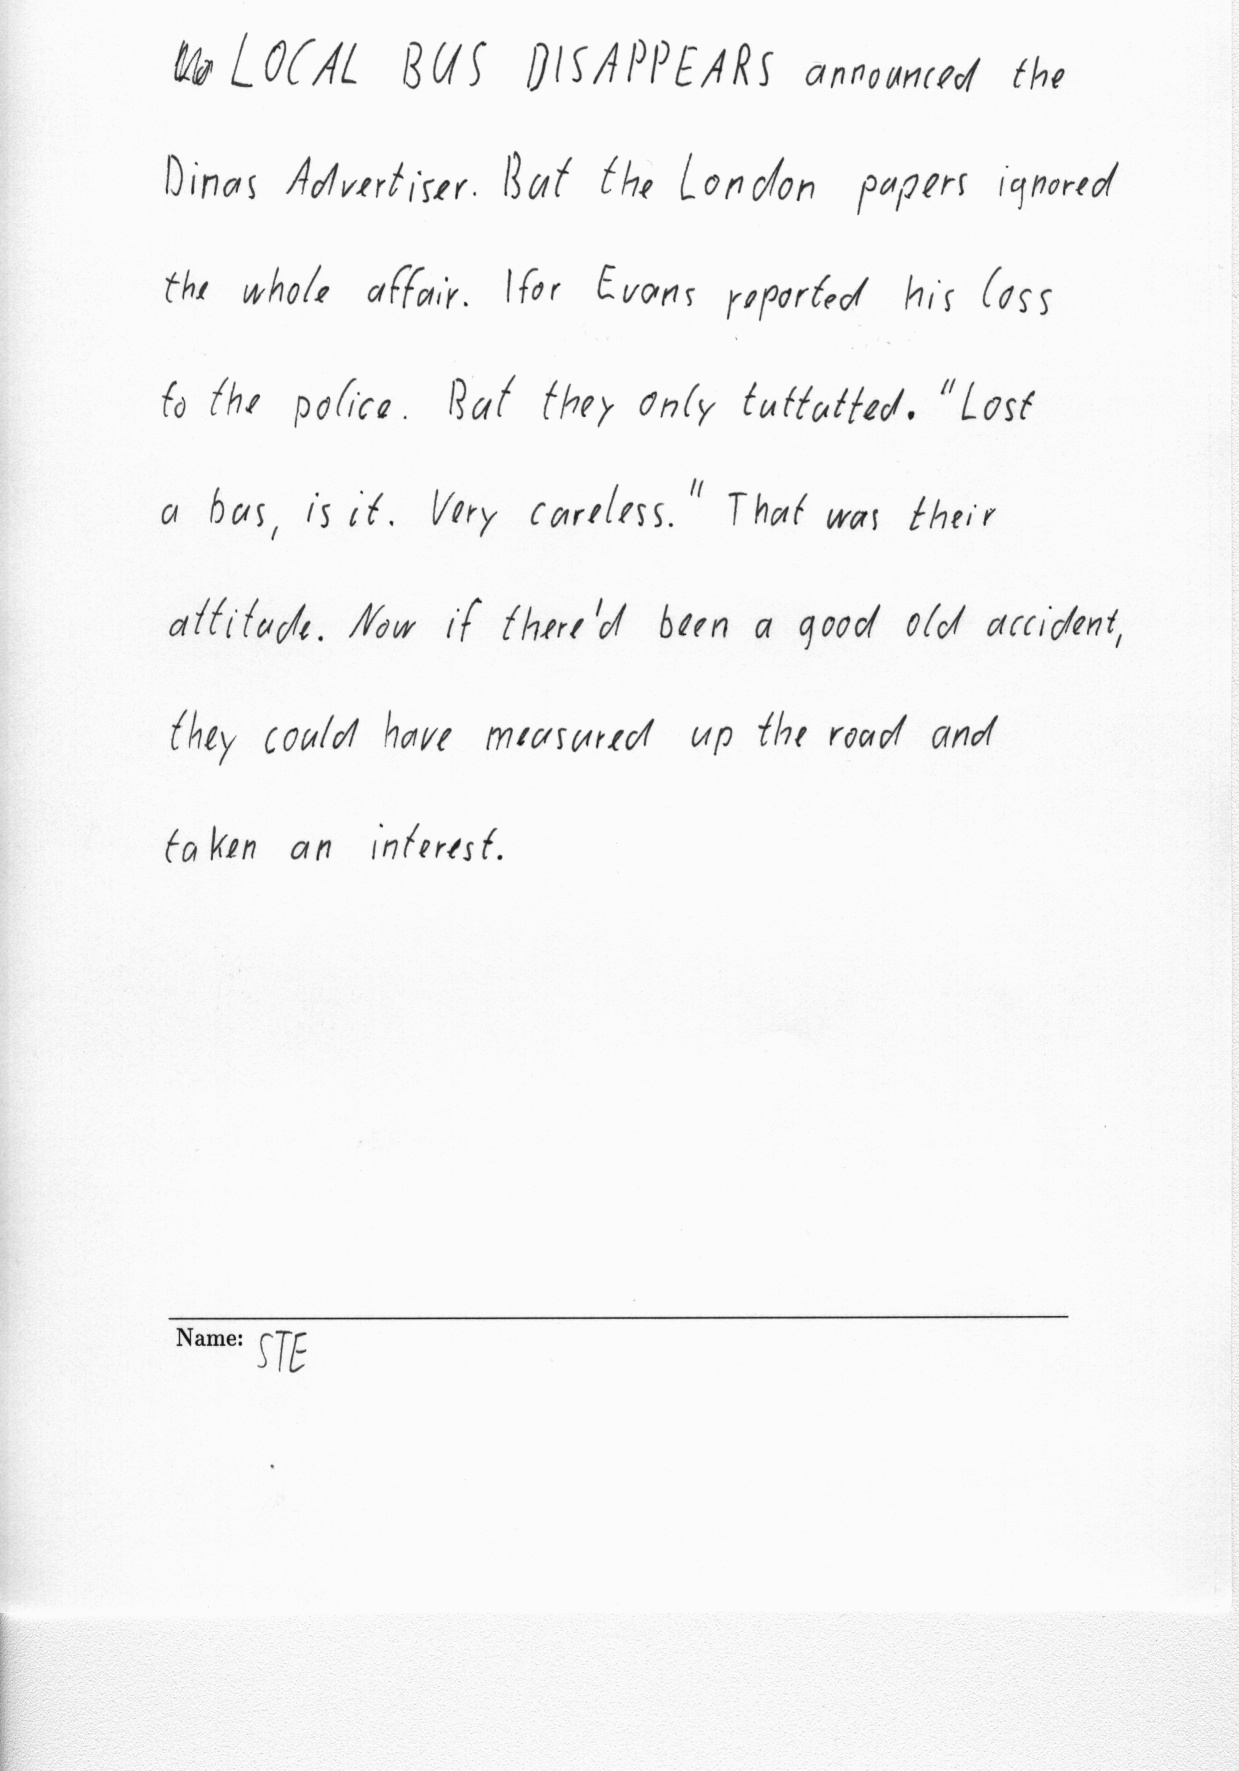 LOCAL BUS DISAPPEARS announced the
Dinas Advertiser. But the London papers ignored
the whole affair. Ifor Evans reported his loss
to the police. But they only tuttutted. "Lost
a bus, is it. Very careless." That was their
attitude. Now if there'd been a good old accident,
they could have measured up the road and
taken an interest.
Name: STE